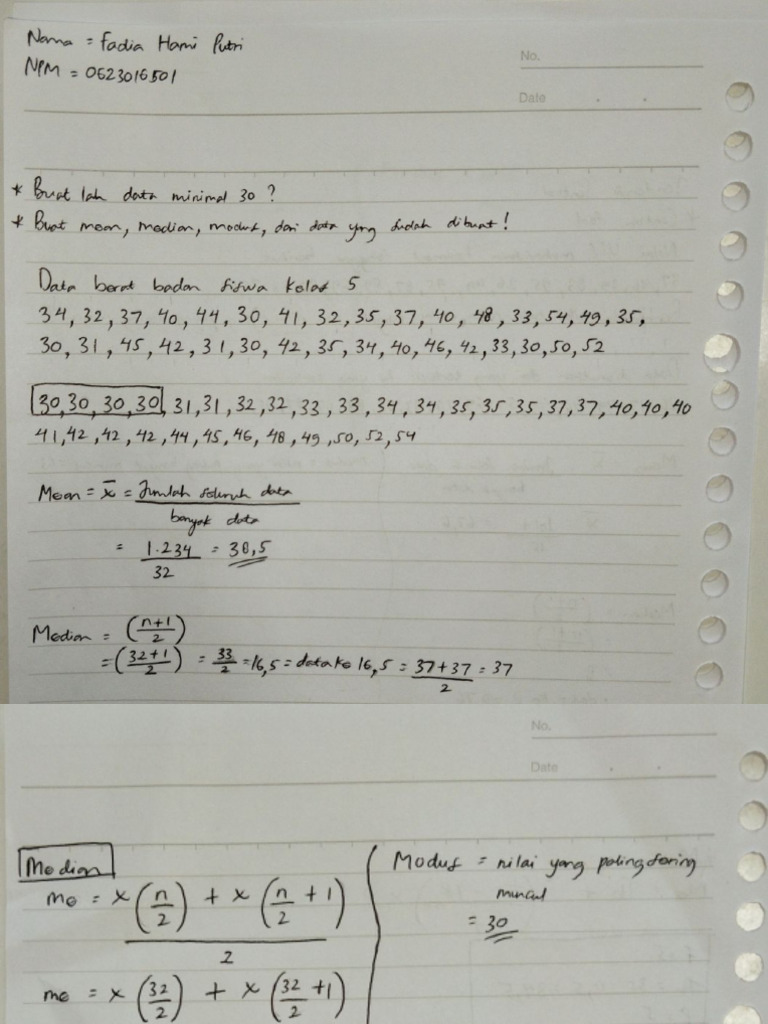 Nama = Fadia Hami Putri
NPM = 0623016501
No.
Date
* Buat lah data minimal 30 ?
* Buat mean, median, modus, dari data yng sudah dibuat !
Data berat badan siswa kelas 5
34, 32, 37, 40, 44, 30, 41, 32, 35, 37, 40, 48, 33, 54, 49, 35,
30, 31, 45, 42, 31, 30, 42, 35, 34, 40, 46, 42, 33, 30, 50, 52
30, 30, 30, 30, 31, 31, 32, 32, 33, 33, 34, 34, 35, 35, 35, 37, 37, 40, 40, 40
41, 42, 42, 42, 44, 45, 46, 48, 49, 50, 52, 54
Mean = x̄ = Jumlah seluruh data
banyak data
= 1.234 = 38,5
32
Median = (n+1/2)
= (32+1/2) = 33/2 = 16,5 = data ke 16,5 = 37+37 = 37
2
No.
Date
Median
me = x (n/2) + x (n/2 + 1)
2
me = x (32/2) + x (32/2 + 1)
Modus = nilai yang paling sering
muncul
= 30